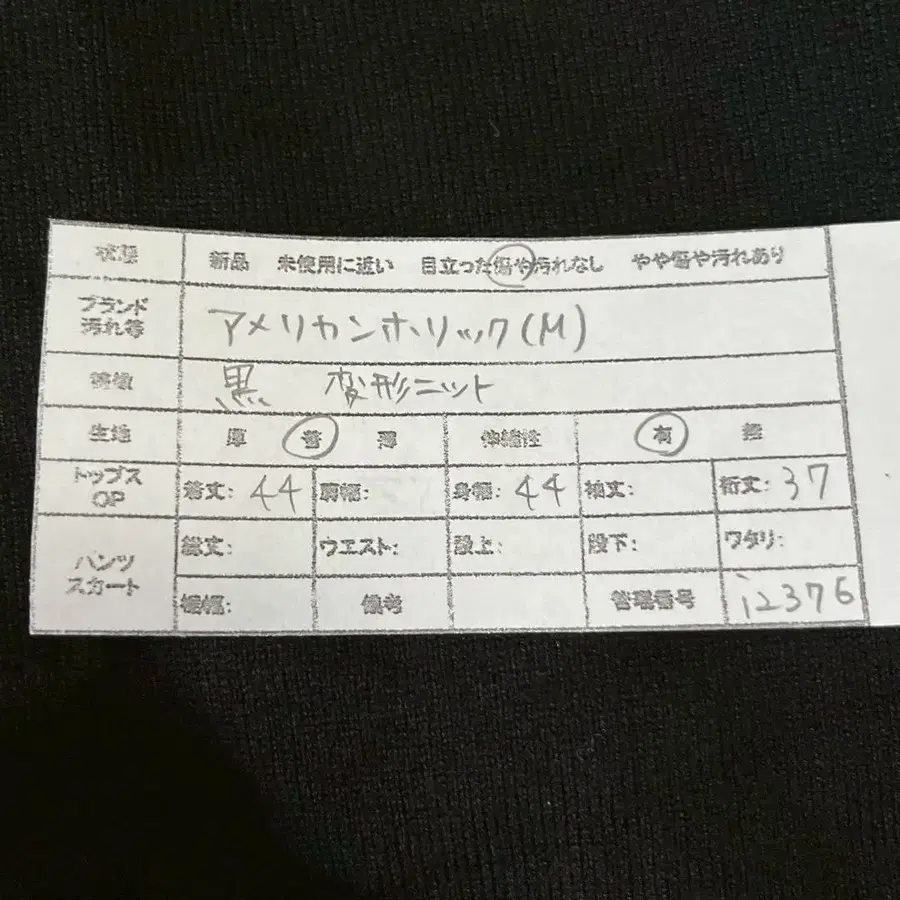 状態 新品 未使用に近い 目立った傷や汚れなし やや傷や汚れあり
ブランド
汚れ等 アメリカンホリック(M)
特徴 黒 変形ニット
生地 厚 普 薄 伸縮性 有 無
トップス
OP 着丈: 44 肩幅: 身幅: 44 袖丈: 裄丈: 37
パンツ
スカート 総丈: ウエスト: 股上: 股下: ワタリ:
裾幅: 備考 管理番号 i2376